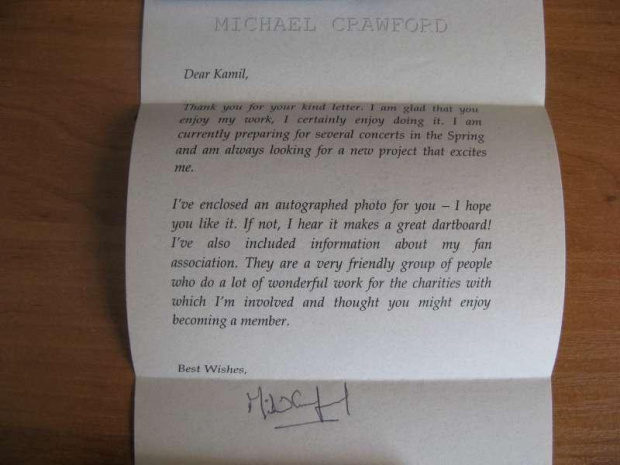 MICHAEL CRAWFORD
Dear Kamil,
Thank you for your kind letter. I am glad that you
enjoy my work, I certainly enjoy doing it. I am
currently preparing for several concerts in the Spring
and am always looking for a new project that excites
me.
I've enclosed an autographed photo for you – I hope
you like it. If not, I hear it makes a great dartboard!
I've also included information about my fan
association. They are a very friendly group of people
who do a lot of wonderful work for the charities with
which I'm involved and thought you might enjoy
becoming a member.
Best Wishes,